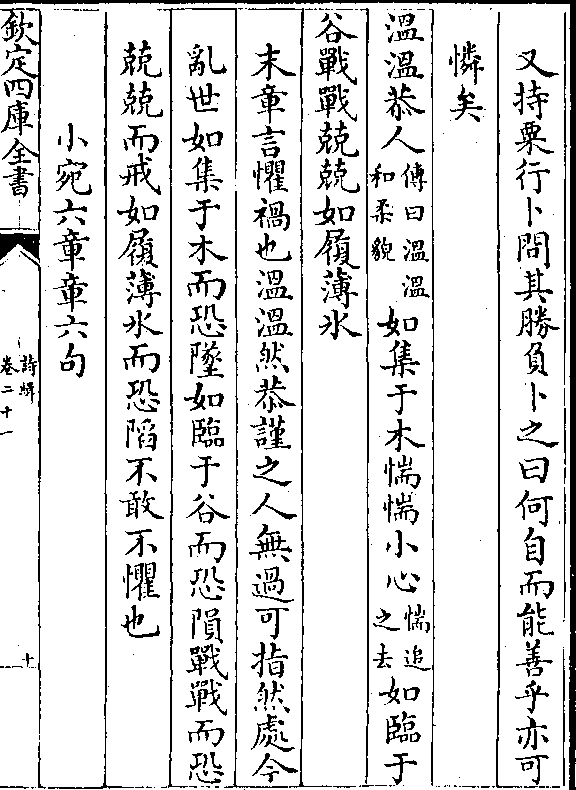 又持粟行卜問其勝負卜之曰何自而能善乎亦可
憐矣
溫溫恭人傳曰溫溫和柔貌如集于木惴惴小心惴追之去如臨于
谷戰戰兢兢如履薄冰
末章言懼禍也溫溫然恭謹之人無過可指然處今
亂世如集于木而恐墜如臨于谷而恐隕戰戰而恐
兢兢而戒如履薄氷而恐陷不敢不懼也
小宛六章章六句
欽定四庫全書
詩緝
卷二十一
十